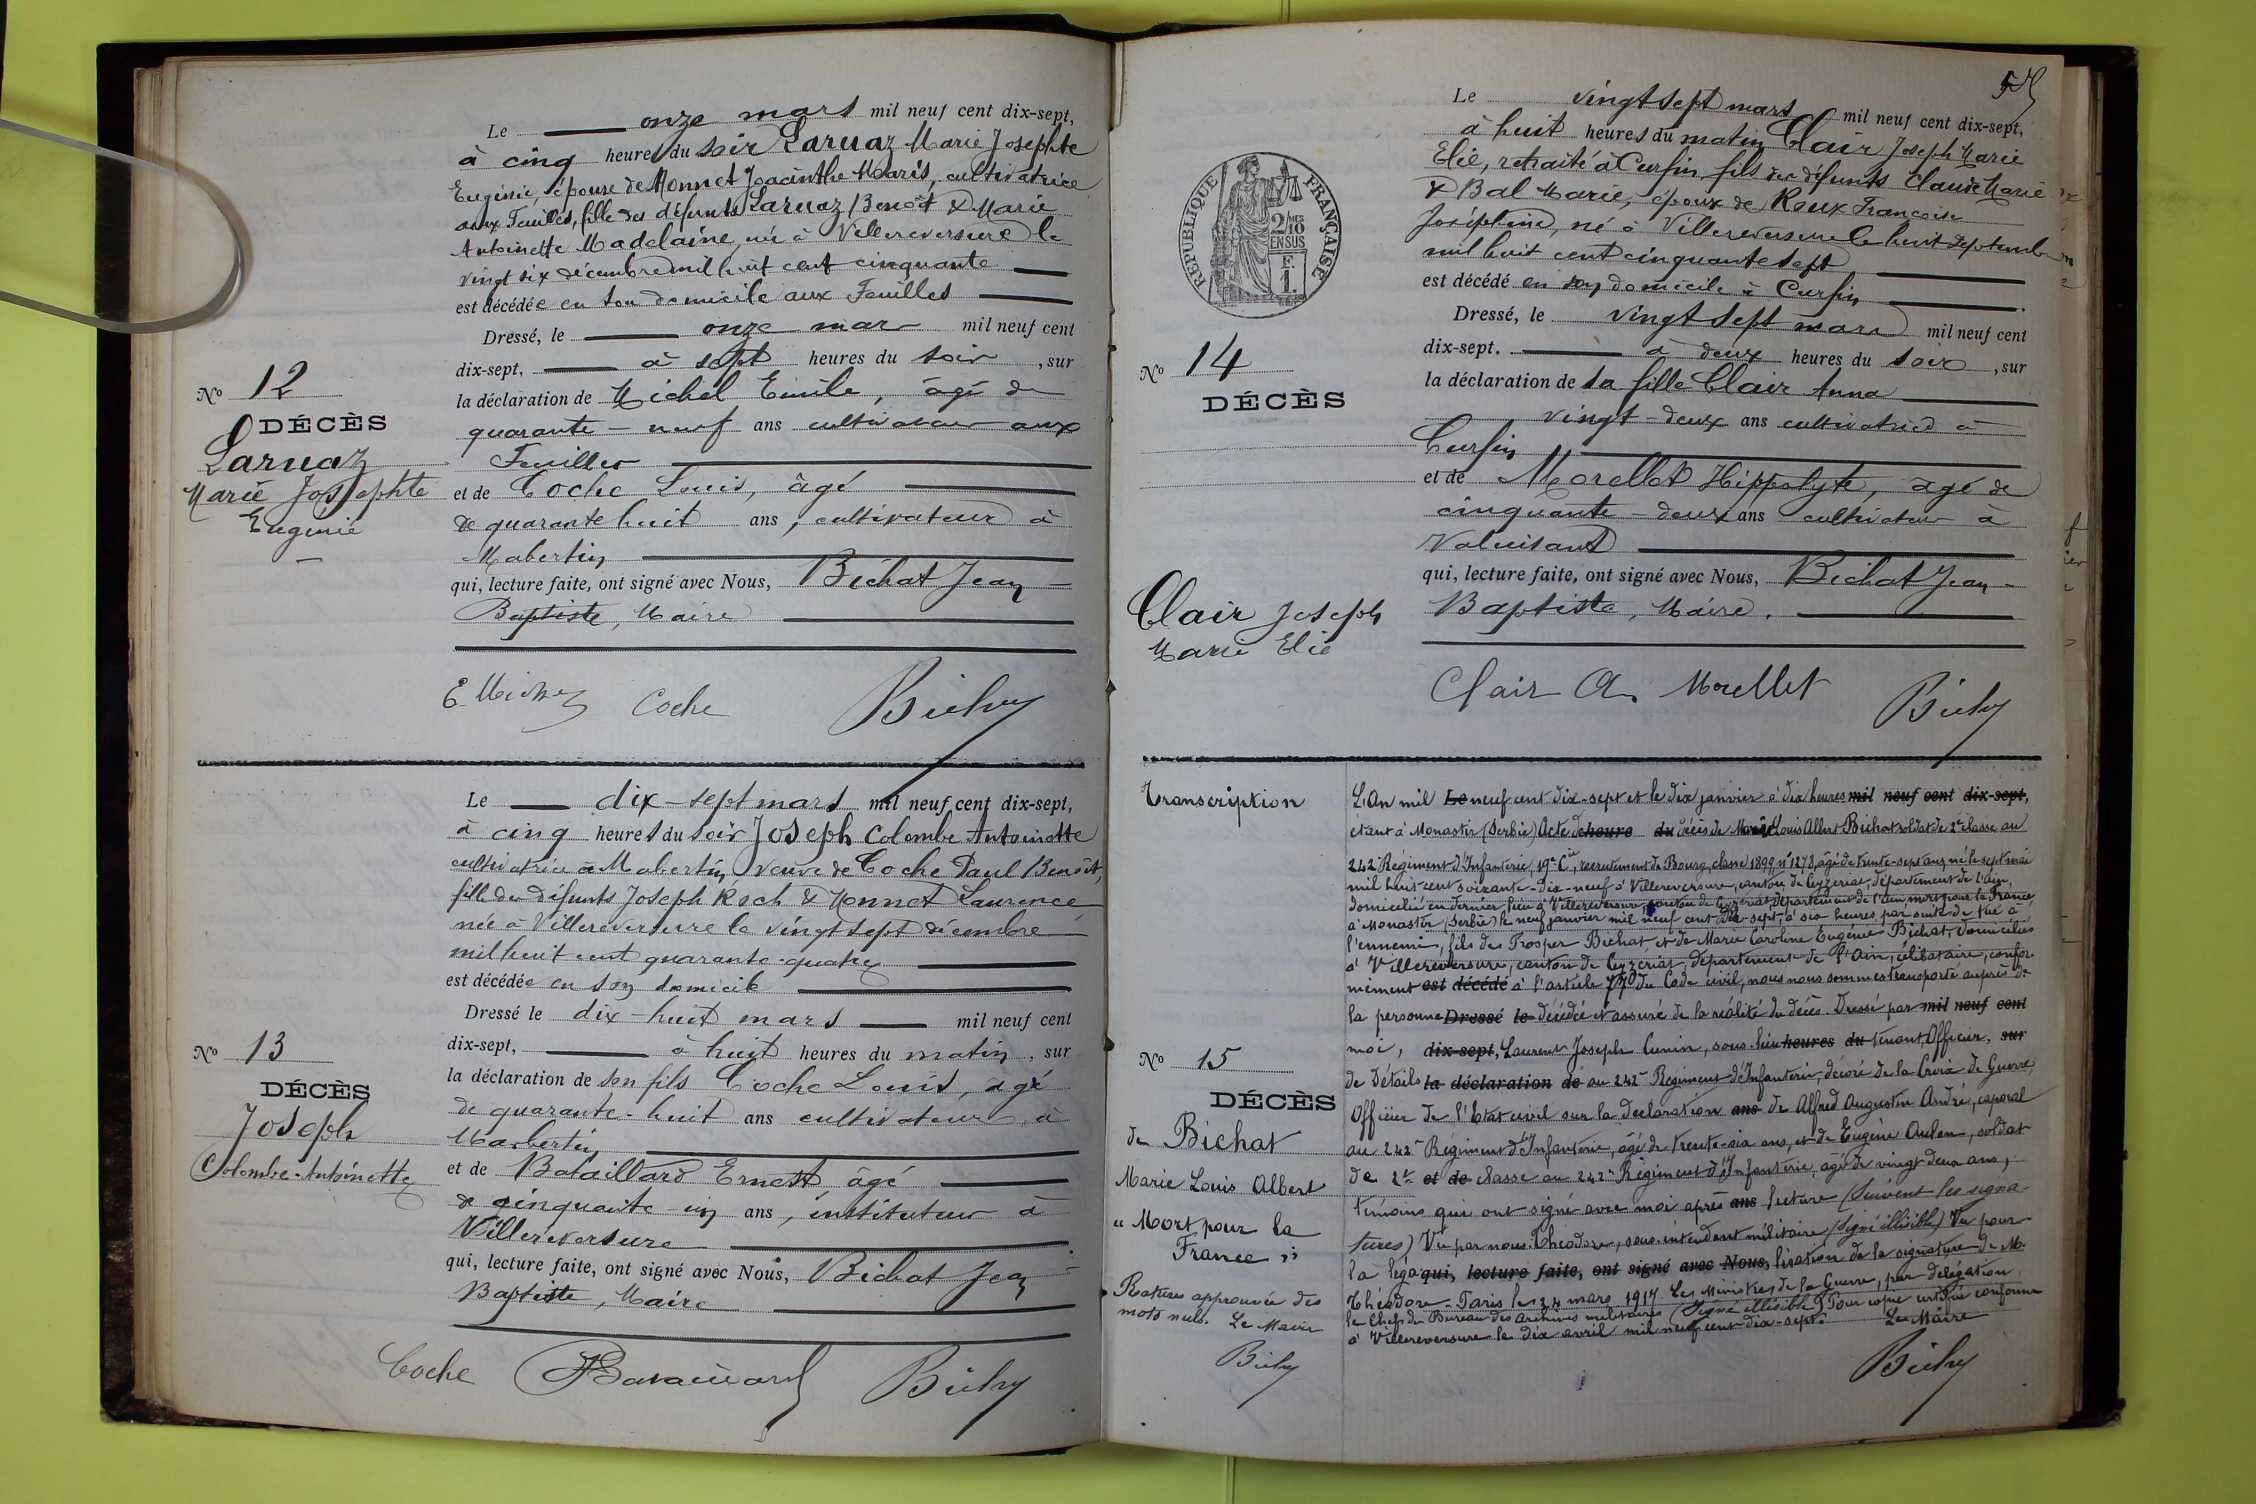 Le onze mars mil neuf cent dix-sept,
à cinq heures du soir Laruaz Marie Josephte
Eugénie, épouse de Monnet Joacinthe Maris, cultivatrice
aux Feuilles, fille des défunts Laruaz Benoît & Marie
Antoinette Madelaine, née à Villereversure le
vingt six décembre mil huit cent cinquante
est décédée en son domicile aux Feuilles
Dressé, le onze mars mil neuf cent
dix-sept, à sept heures du soir, sur
la déclaration de Michel Emile, âgé de
quarante-neuf ans cultivateur aux
Feuilles
et de Coche Louis, âgé
de quarante huit ans, cultivateur à
Mabertin
qui, lecture faite, ont signé avec Nous, Bichat Jean-
Baptiste, Maire
E Michel Coche Bichat
No 12
DÉCÈS
Laruaz
Marie Josephte
Eugénie
Le dix-sept mars mil neuf cent dix-sept,
à cinq heures du soir Joseph Colombe Antoinette
cultivatrice à Mabertin veuve de Coche Paul Benoît,
fille des défunts Joseph Roch & Monnet Laurence
née à Villereversure le vingt sept décembre
mil huit cent quarante-quatre
est décédée en son domicile
Dressé le dix-huit mars mil neuf cent
dix-sept, à huit heures du matin, sur
la déclaration de son fils Coche Louis, âgé
de quarante-huit ans cultivateur à
Mabertin
et de Bataillard Ernest, âgé
de cinquante-un ans, instituteur à
Villereversure
qui, lecture faite, ont signé avec Nous, Bichat Jean-
Baptiste, Maire
Coche Bataillard Bichat
No 13
DÉCÈS
Joseph
Colombe-Antoinette
RÉPUBLIQUE FRANÇAISE
2/10 MES
EN SUS
F.
1.
Le vingt sept mars mil neuf cent dix-sept,
à huit heures du matin Clair Joseph Marie
Elie, retraité à Curfin, fils des défunts Claude Marie
& Bal Marie, époux de Roux Françoise
Joséphine, né à Villereversure le huit septembre
mil huit cent cinquante sept
est décédé en son domicile à Curfin
Dressé, le vingt sept mars mil neuf cent
dix-sept. à deux heures du soir, sur
la déclaration de sa fille Clair Anna
vingt-deux ans cultivatrice à
Curfin
et de Morellet Hippolyte, âgé de
cinquante-deux ans cultivateur à
Valuisant
qui, lecture faite, ont signé avec Nous, Bichat Jean-
Baptiste, Maire.
Clair A. Morellet Bichat
No 14
DÉCÈS
Clair Joseph
Marie Elie
Transcription
L'An mil Le neuf cent dix-sept et le dix janvier à dix heures mil neuf cent dix-sept,
étant à Monastir (Serbie) Acte de heure du décès de Marie Louis Albert Bichat soldat de 2e classe au
242e Régiment d'Infanterie, 19e Cie, recrutement de Bourg, classe 1899, n° 1278, âgé de trente-sept ans, né le sept mai
mil huit cent soixante-dix-neuf à Villereversure, canton de Ceyzeriat, département de l'Ain,
domicilié en dernier lieu à Villereversure, canton de Ceyzeriat département de l'Ain, mort pour la France
à Monastir (Serbie) le neuf janvier mil neuf cent dix-sept, à six heures, par suite de tué à
l'ennemi, fils de Prosper Bichat et de Marie Caroline Eugénie Bichat, domiciliés
à Villereversure, canton de Ceyzeriat, département de l'Ain, célibataire, confor-
mément est décédé à l'article 77 du Code civil, nous nous sommes transporté auprès de
la personne Dressé le décédée et assuré de la réalité du décès. Dressé par mil neuf cent
moi, dix-sept, Laurent Joseph Cunin, sous-lieu heures du tenant, Officier, sur
de Détails la déclaration de au 242e Régiment d'Infanterie, décoré de la Croix de Guerre,
Officier de l'Etat civil sur la déclaration ans de Alfred Augustin André, caporal
au 242e Régiment d'Infanterie, âgé de trente-six ans, et de Eugène Aulen, soldat
de 2e et de classe au 242e Régiment d'Infanterie, âgé de vingt deux ans,
témoins qui ont signé avec moi après ans lecture (Suivent les signa-
tures) Vu par nous Théodore, sous-intendant militaire (Signé illisible) Vu pour
la léga qui, lecture faite, ont signé avec Nous, lisation de la signature de M.
Théodore - Paris le 24 mars 1917 Le Ministre de la Guerre, par délégation
le Chef du Bureau des Archives militaires (Signé illisible) Pour copie certifiée conforme
à Villereversure le dix avril mil neuf cent dix-sept. Le Maire
Bichat
No 15
DÉCÈS
de Bichat
Marie Louis Albert
"Mort pour la
France"
Ratures approuvée des
mots nuls. Le Maire
Bichat